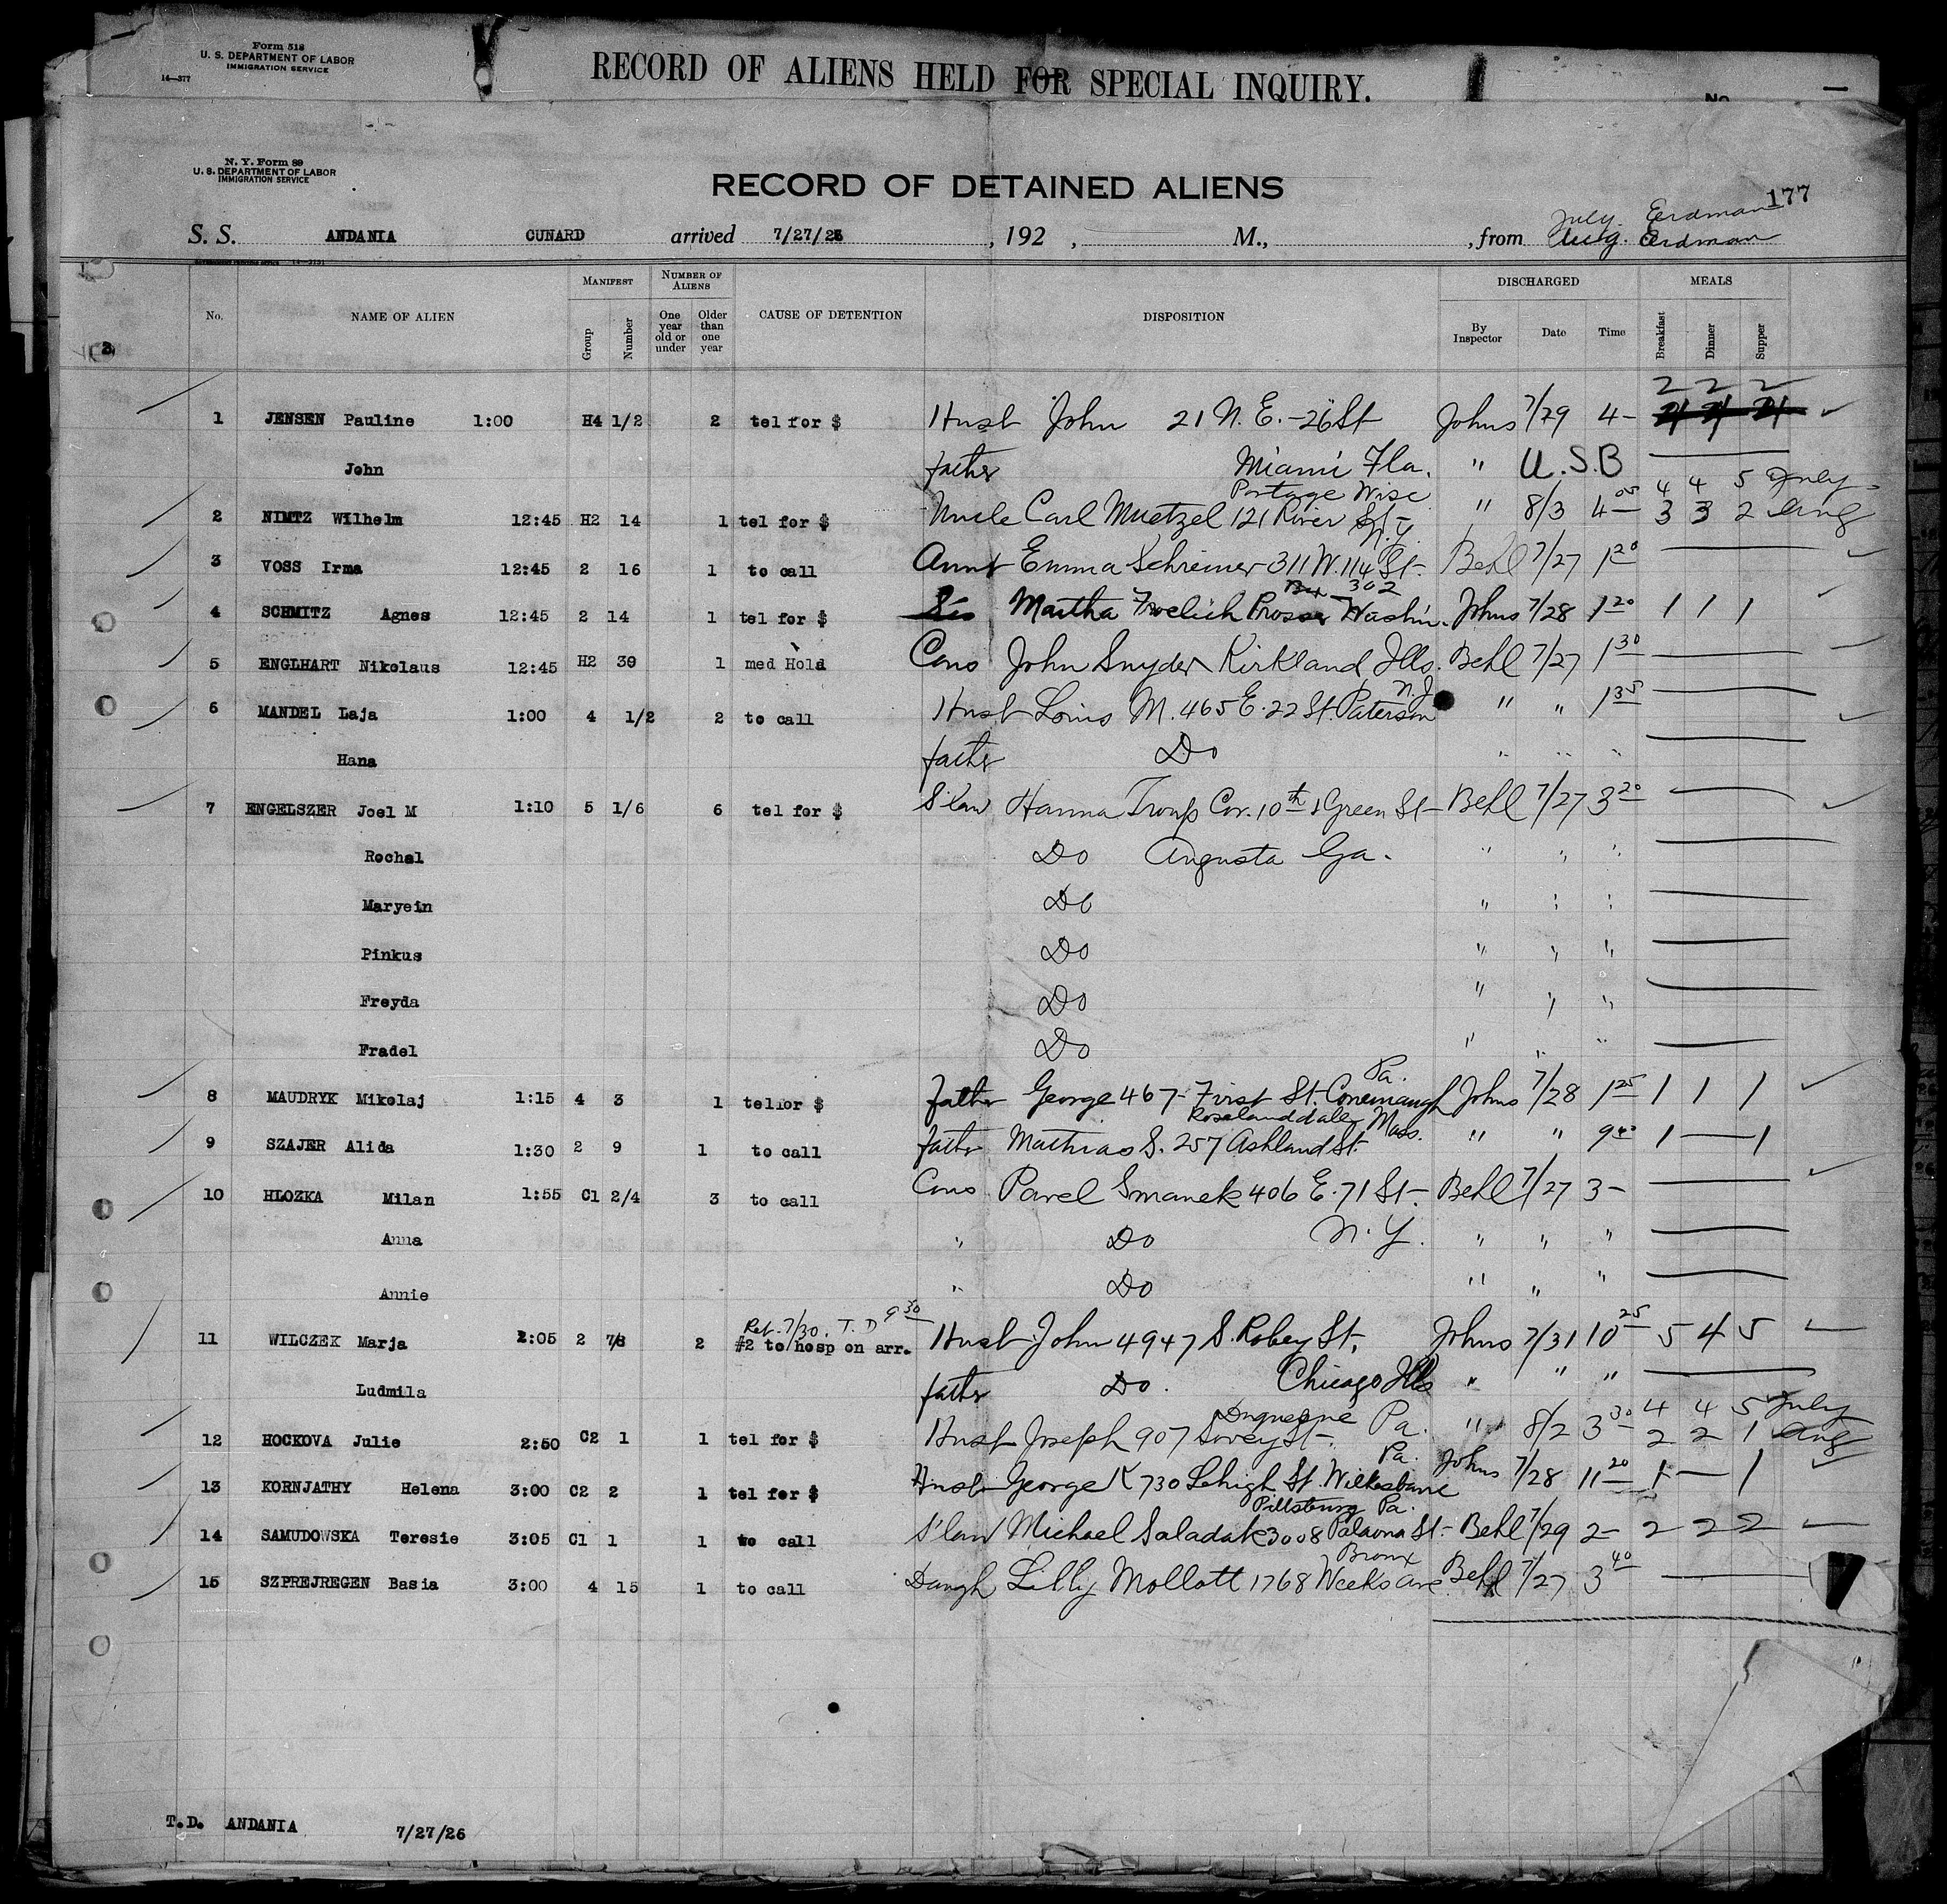 Form 518
U. S. DEPARTMENT OF LABOR
IMMIGRATION SERVICE
14—377
RECORD OF ALIENS HELD FOR SPECIAL INQUIRY.
No.
N. Y. Form 89
U. S. DEPARTMENT OF LABOR
IMMIGRATION SERVICE
RECORD OF DETAINED ALIENS
177
July. Erdman
S. S. ANDANIA CUNARD arrived 7/27/26, 192 , M., , from Aug. Erdman
No. NAME OF ALIEN MANIFEST Group Number NUMBER OF ALIENS One year old or under Older than one year CAUSE OF DETENTION DISPOSITION DISCHARGED By Inspector Date Time MEALS Breakfast Dinner Supper
2 2 2
1 JENSEN Pauline 1:00 H4 1/2 2 tel for $ Husb John 21 N. E. - 26 St Johns 7/29 4-
John father Miami Fla. " U.S.B
Portage Wisc 4 4 5 July
2 NIMTZ Wilhelm 12:45 H2 14 1 tel for $ Uncle Carl Muetzel 121 River St. " 8/3 4 05 3 3 2 Aug
N.Y.
3 VOSS Irma 12:45 2 16 1 to call Aunt Emma Schreiner 311 W. 114 St. Behl 7/27 1 20
Bx 302
4 SCHMITZ Agnes 12:45 2 14 1 tel for $ Sis Martha Froelich Prosser Washn. Johns 7/28 1 20 1 1 1
5 ENGLHART Nikolaus 12:45 H2 30 1 med Hold Cous John Snyder Kirkland Ills. Behl 7/27 1 30
N.J.
6 MANDEL Laja 1:00 4 1/2 2 to call Husb Louis M. 465 E. 22 St. Paterson " " 1 35
Hana father Do " " "
7 ENGELSZER Joel M 1:10 5 1/6 6 tel for $ S'law Hanna Troup Cor. 10th & Green St Behl 7/27 3 20
Rochel Do Augusta Ga. " " "
Maryein Do " " "
Pinkus Do " " "
Freyda Do " " "
Fradel Do " " "
Pa.
8 MAUDRYK Mikolaj 1:15 4 3 1 tel for $ father George 467 First St. Conemaugh Johns 7/28 1 25 1 1 1
Roselanddale Mass.
9 SZAJER Alida 1:30 2 9 1 to call father Mathias S. 257 Ashland St. " " 9 40 1 — 1
10 HLOZKA Milan 1:55 C1 2/4 3 to call Cous Pavel Smanek 406 E. 71 St- Behl 7/27 3-
Anna " Do N.Y. " " "
Annie " Do " " "
Ret. 7/30. T. D 9 30
11 WILCZEK Marja 2:05 2 7/8 2 #2 to hosp on arr. Husb John 4947 S. Robey St. Johns 7/31 10 25 5 4 5
Ludmila father Do. Chicago Ills " " "
Duquesne Pa. 4 4 5 July
12 HOCKOVA Julie 2:50 C2 1 1 tel for $ Husb Joseph 907 St. " 8/2 3 30 2 2 1 Aug
Pa.
13 KORNJATHY Helena 3:00 C2 2 1 tel for $ Husb George K 730 Lehigh St. Wilkesbarre Johns 7/28 11 20 1 — 1
Pittsburg Pa.
14 SAMUDOWSKA Teresie 3:05 C1 1 1 to call S'law Michael Saladak 3008 St- Behl 7/29 2- 2 2 2
Bronx
15 SZPREJREGEN Basia 3:00 4 15 1 to call Daugh Lilly Mollott 1768 Weeks ave. Behl 7/27 3 40
T.D. ANDANIA 7/27/26